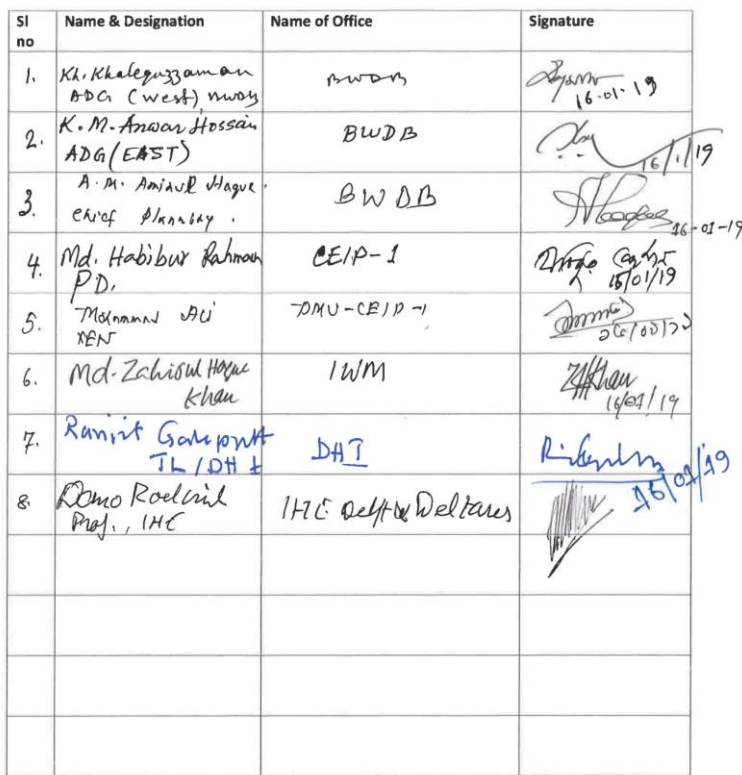 Sl no
Name & Designation
Name of Office
Signature
1.
Kh. Khalequzzaman
ADG (West), BWDB
BWDB
16-01-19
2.
K.M. Anwar Hossain
ADG (EAST)
BWDB
16/1/19
3.
A.M. Aminul Haque.
Chief Planning.
BWDB
16-01-19
4.
Md. Habibur Rahman
PD,
CEIP-1
16/01/19
5.
Mohammad Ali
XEN
PMU-CEIP-1
6.
Md. Zahirul Haque
Khan
IWM
ZHKhan
16/01/19
7.
Ranjit
TL/DHI
DHI
16/01/19
8.
Prof., IHE
IHE Delft & Deltares